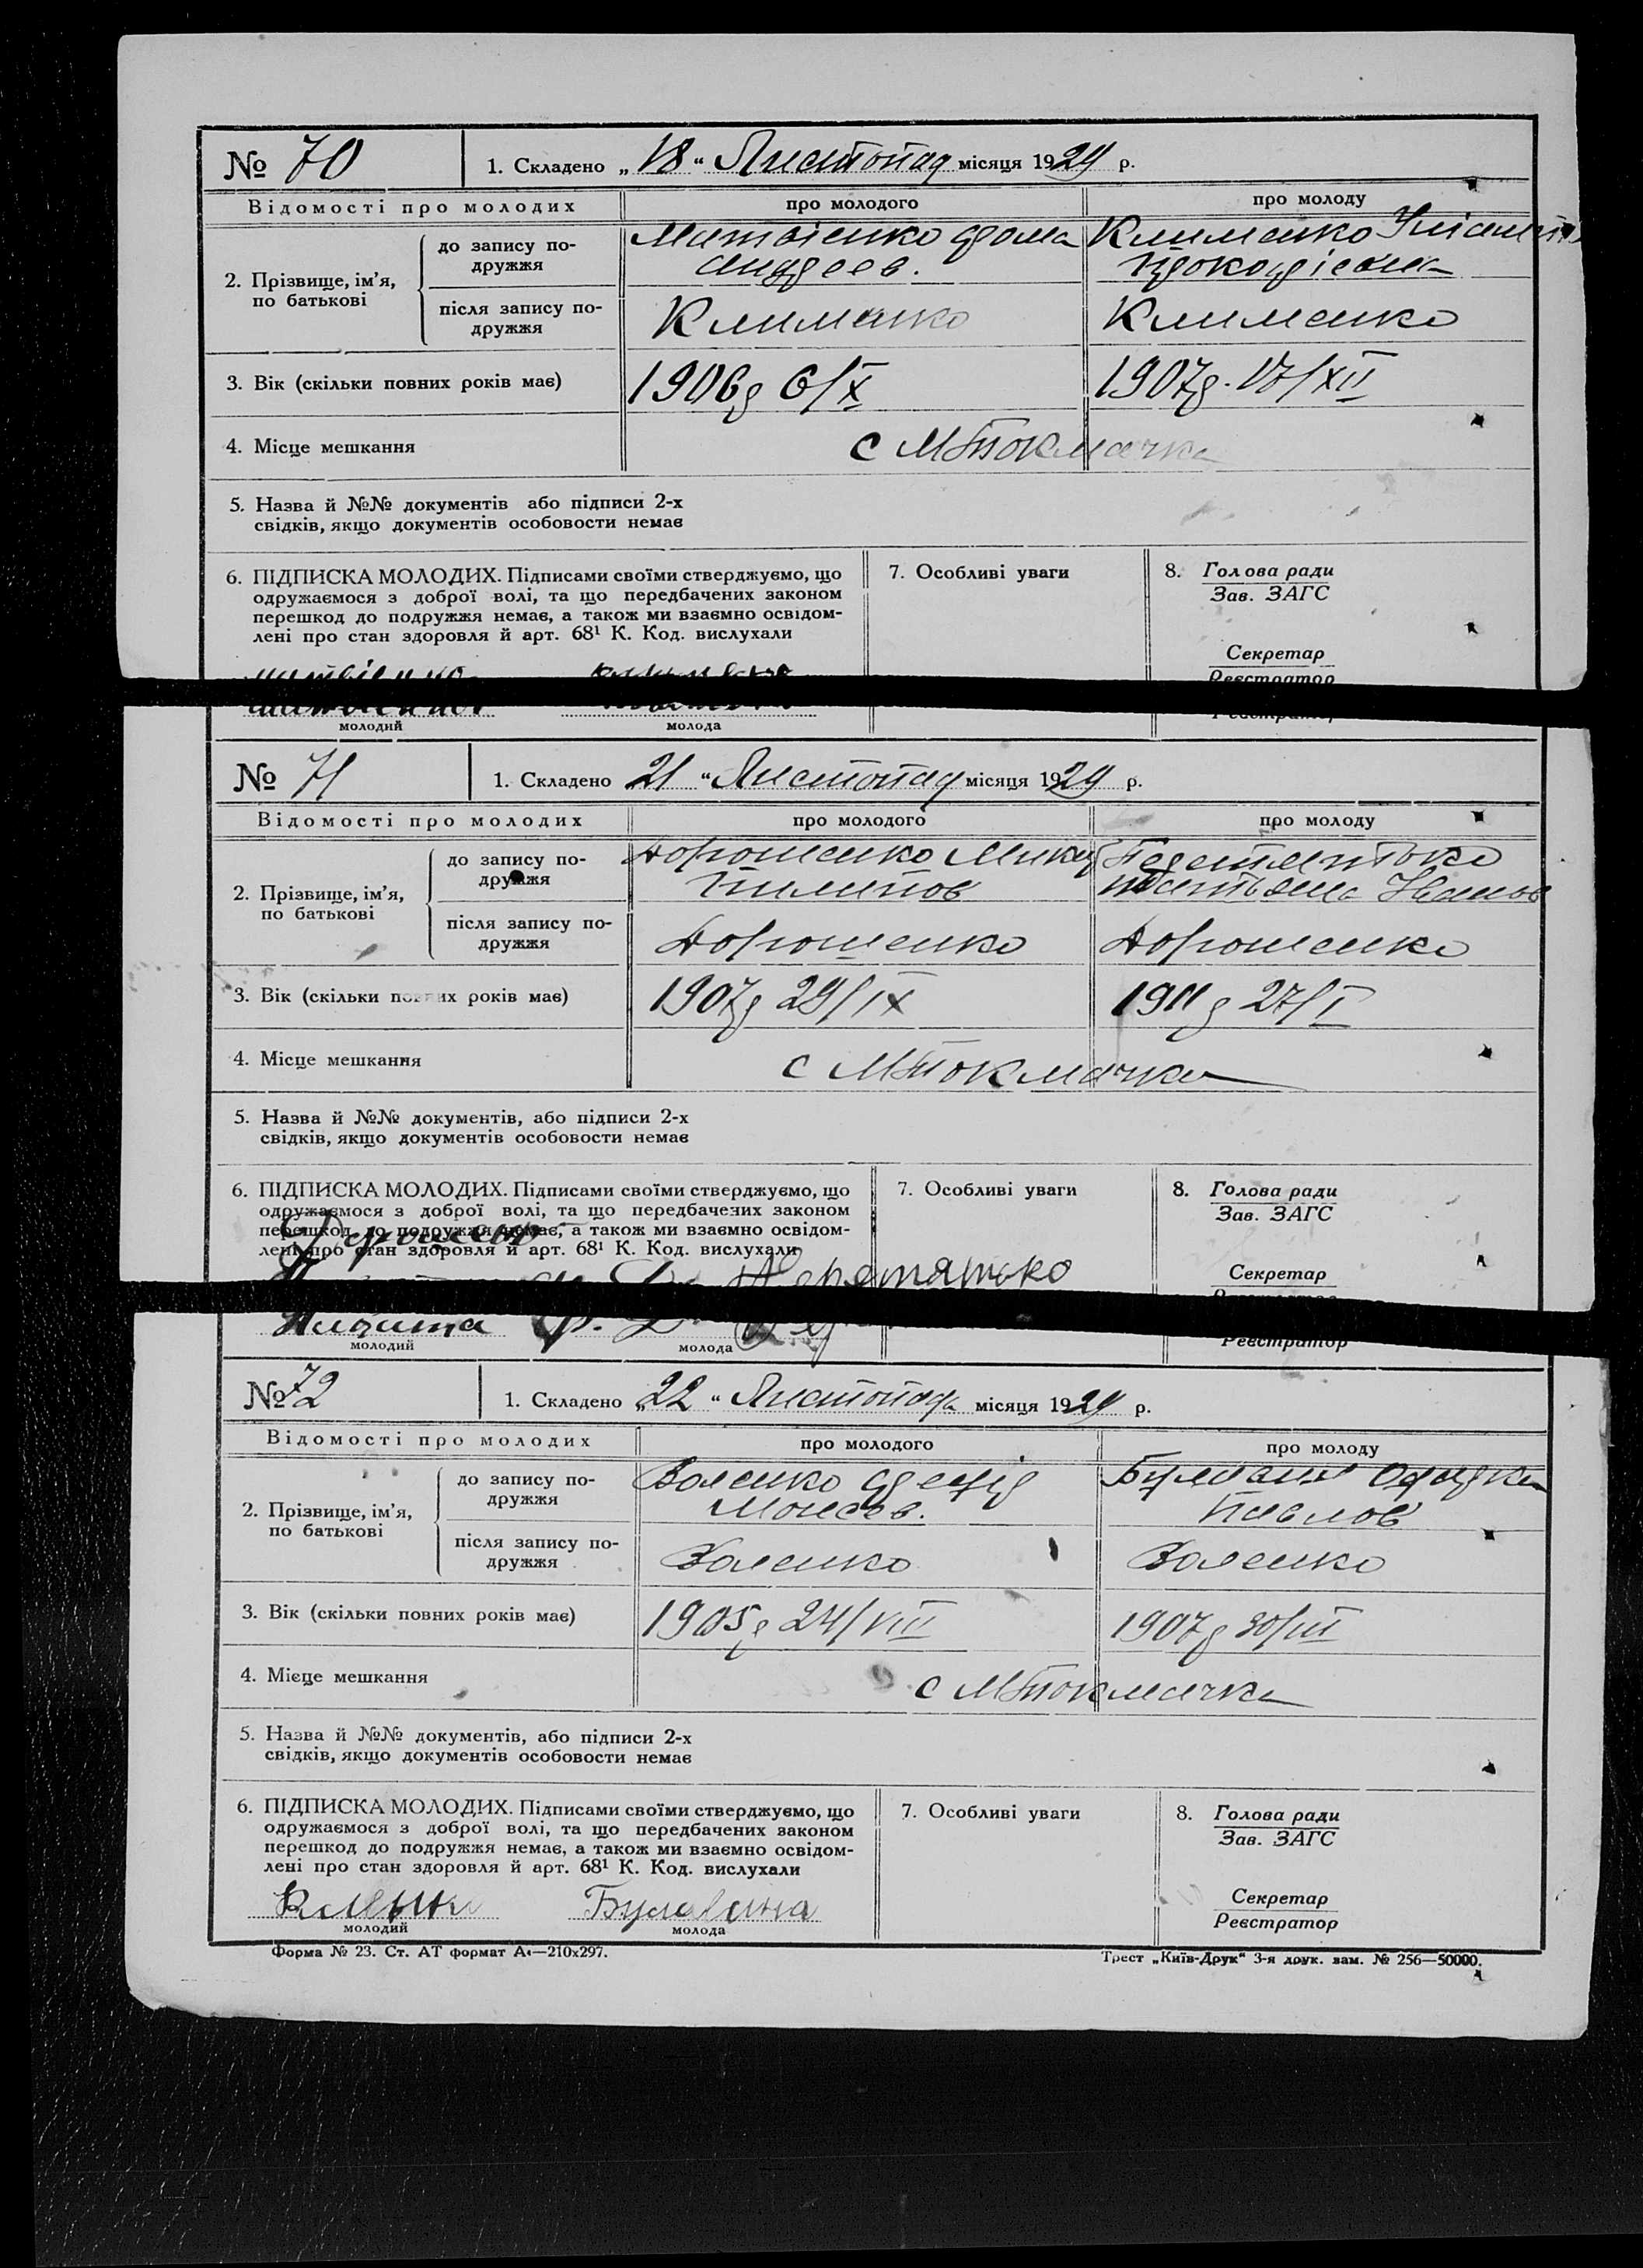 № 70 1. Складено „18“ Листопад місяця 1929 р.
Відомості про молодих про молодого про молоду
2. Прізвище, ім’я, по батькові
до запису по-
дружжя
Матвієнко Хома
Андреев.
Клименко
Прокофієвна
після запису по-
дружжя
Клименко Клименко
3. Вік (скільки повних років має) 1906г 6/X 1907г. 17/XII
4. Місце мешкання с МТокмачка
5. Назва й №№ документів або підписи 2-х
свідків, якщо документів особовости немає
6. ПІДПИСКА МОЛОДИХ. Підписами своїми стверджуємо, що
одружаємося з доброї волі, та що передбачених законом
перешкод до подружжя немає, а також ми взаємно освідом-
лені про стан здоровля й арт. 68¹ К. Код. вислухали
7. Особливі уваги
8. Голова ради
Зав. ЗАГС
Секретар
Реєстратор
молодий молода
№ 71 1. Складено 21 “ Листопад місяця 1929 р.
Відомості про молодих про молодого про молоду
2. Прізвище, ім’я,
по батькові
до запису по-
дружжя
Дорошенко
Пилипов
Перетятько
Іванов
після запису по-
дружжя
Дорошенко Дорошенко
3. Вік (скільки повних років має) 1907г 29/IX 1911г 27/I
4. Місце мешкання с МТокмачка
5. Назва й №№ документів, або підписи 2-х
свідків, якщо документів особовости немає
6. ПІДПИСКА МОЛОДИХ. Підписами своїми стверджуємо, що
одружаємося з доброї волі, та що передбачених законом
перешкод до подружжя немає, а також ми взаємно освідом-
лені про стан здоровля й арт. 68¹ К. Код. вислухали
Перетятько
7. Особливі уваги
8. Голова ради
Зав. ЗАГС
Секретар
Реєстратор
молодий молода
№ 72 1. Складено „22 “ Листопада місяця 1929 р.
Відомості про молодих про молодого про молоду
2. Прізвище, ім’я,
по батькові
до запису по-
дружжя
Моисеев.
Павлов
після запису по-
дружжя
3. Вік (скільки повних років має) 1905г 24/VIII 1907г 30/III
4. Місце мешкання с МТокмачка
5. Назва й №№ документів, або підписи 2-х
свідків, якщо документів особовости немає
6. ПІДПИСКА МОЛОДИХ. Підписами своїми стверджуємо, що
одружаємося з доброї волі, та що передбачених законом
перешкод до подружжя немає, а також ми взаємно освідом-
лені про стан здоровля й арт. 68¹ К. Код. вислухали
Булавина
молодий молода
7. Особливі уваги
8. Голова ради
Зав. ЗАГС
Секретар
Реєстратор
Форма № 23. Ст. АТ формат А₄—210х297. Трест „Київ-Друк“ 3-я друк. зам. № 256—50000.